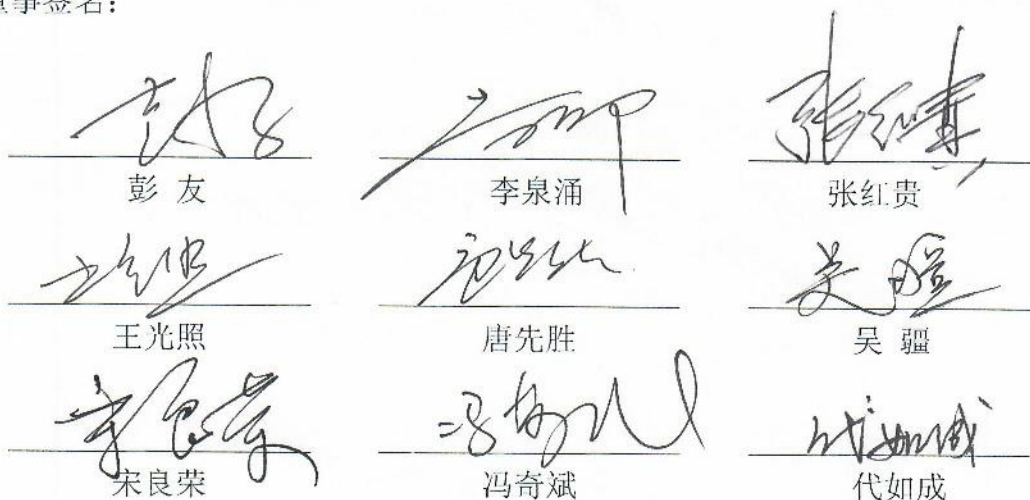 董事签名：
彭 友 李泉涌 张红贵
王光照 唐先胜 吴 疆
宋良荣 冯奇斌 代如成